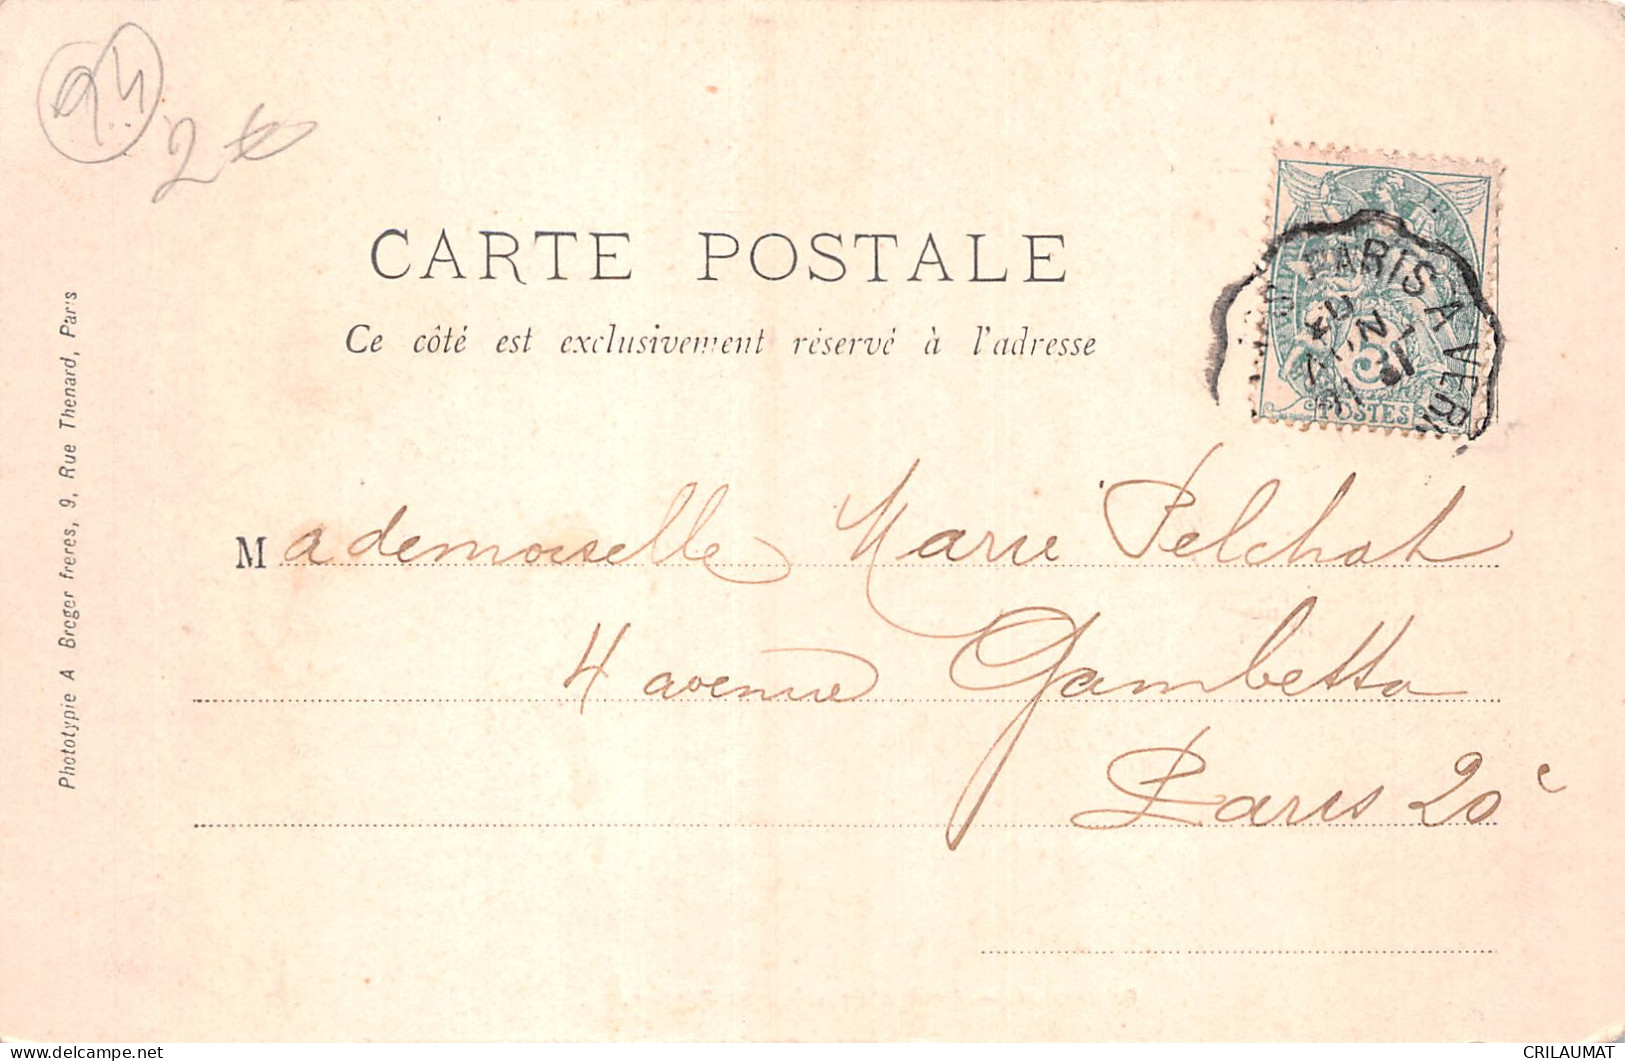 94
2€
CARTE POSTALE
Ce côté est exclusivement réservé à l'adresse
PARIS A VER
POSTES
Mademoiselle Marie Pelchat
4 avenue Gambetta
Paris 20e
Phototypie A Breger freres, 9, Rue Thenard, Paris
CRILAUMAT